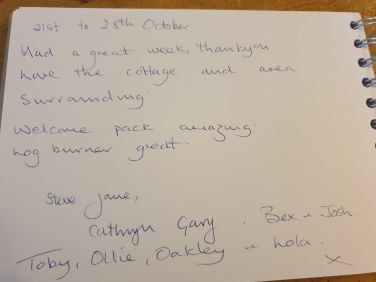 21st to 28th October
Had a great week, thankyou
love the cottage and area
Surrounding.
Welcome pack amazing.
Log burner great.
Steve Jane,
Cathryn Gary . Bex + Josh.
Toby, Ollie, Oakley + Lola.
X